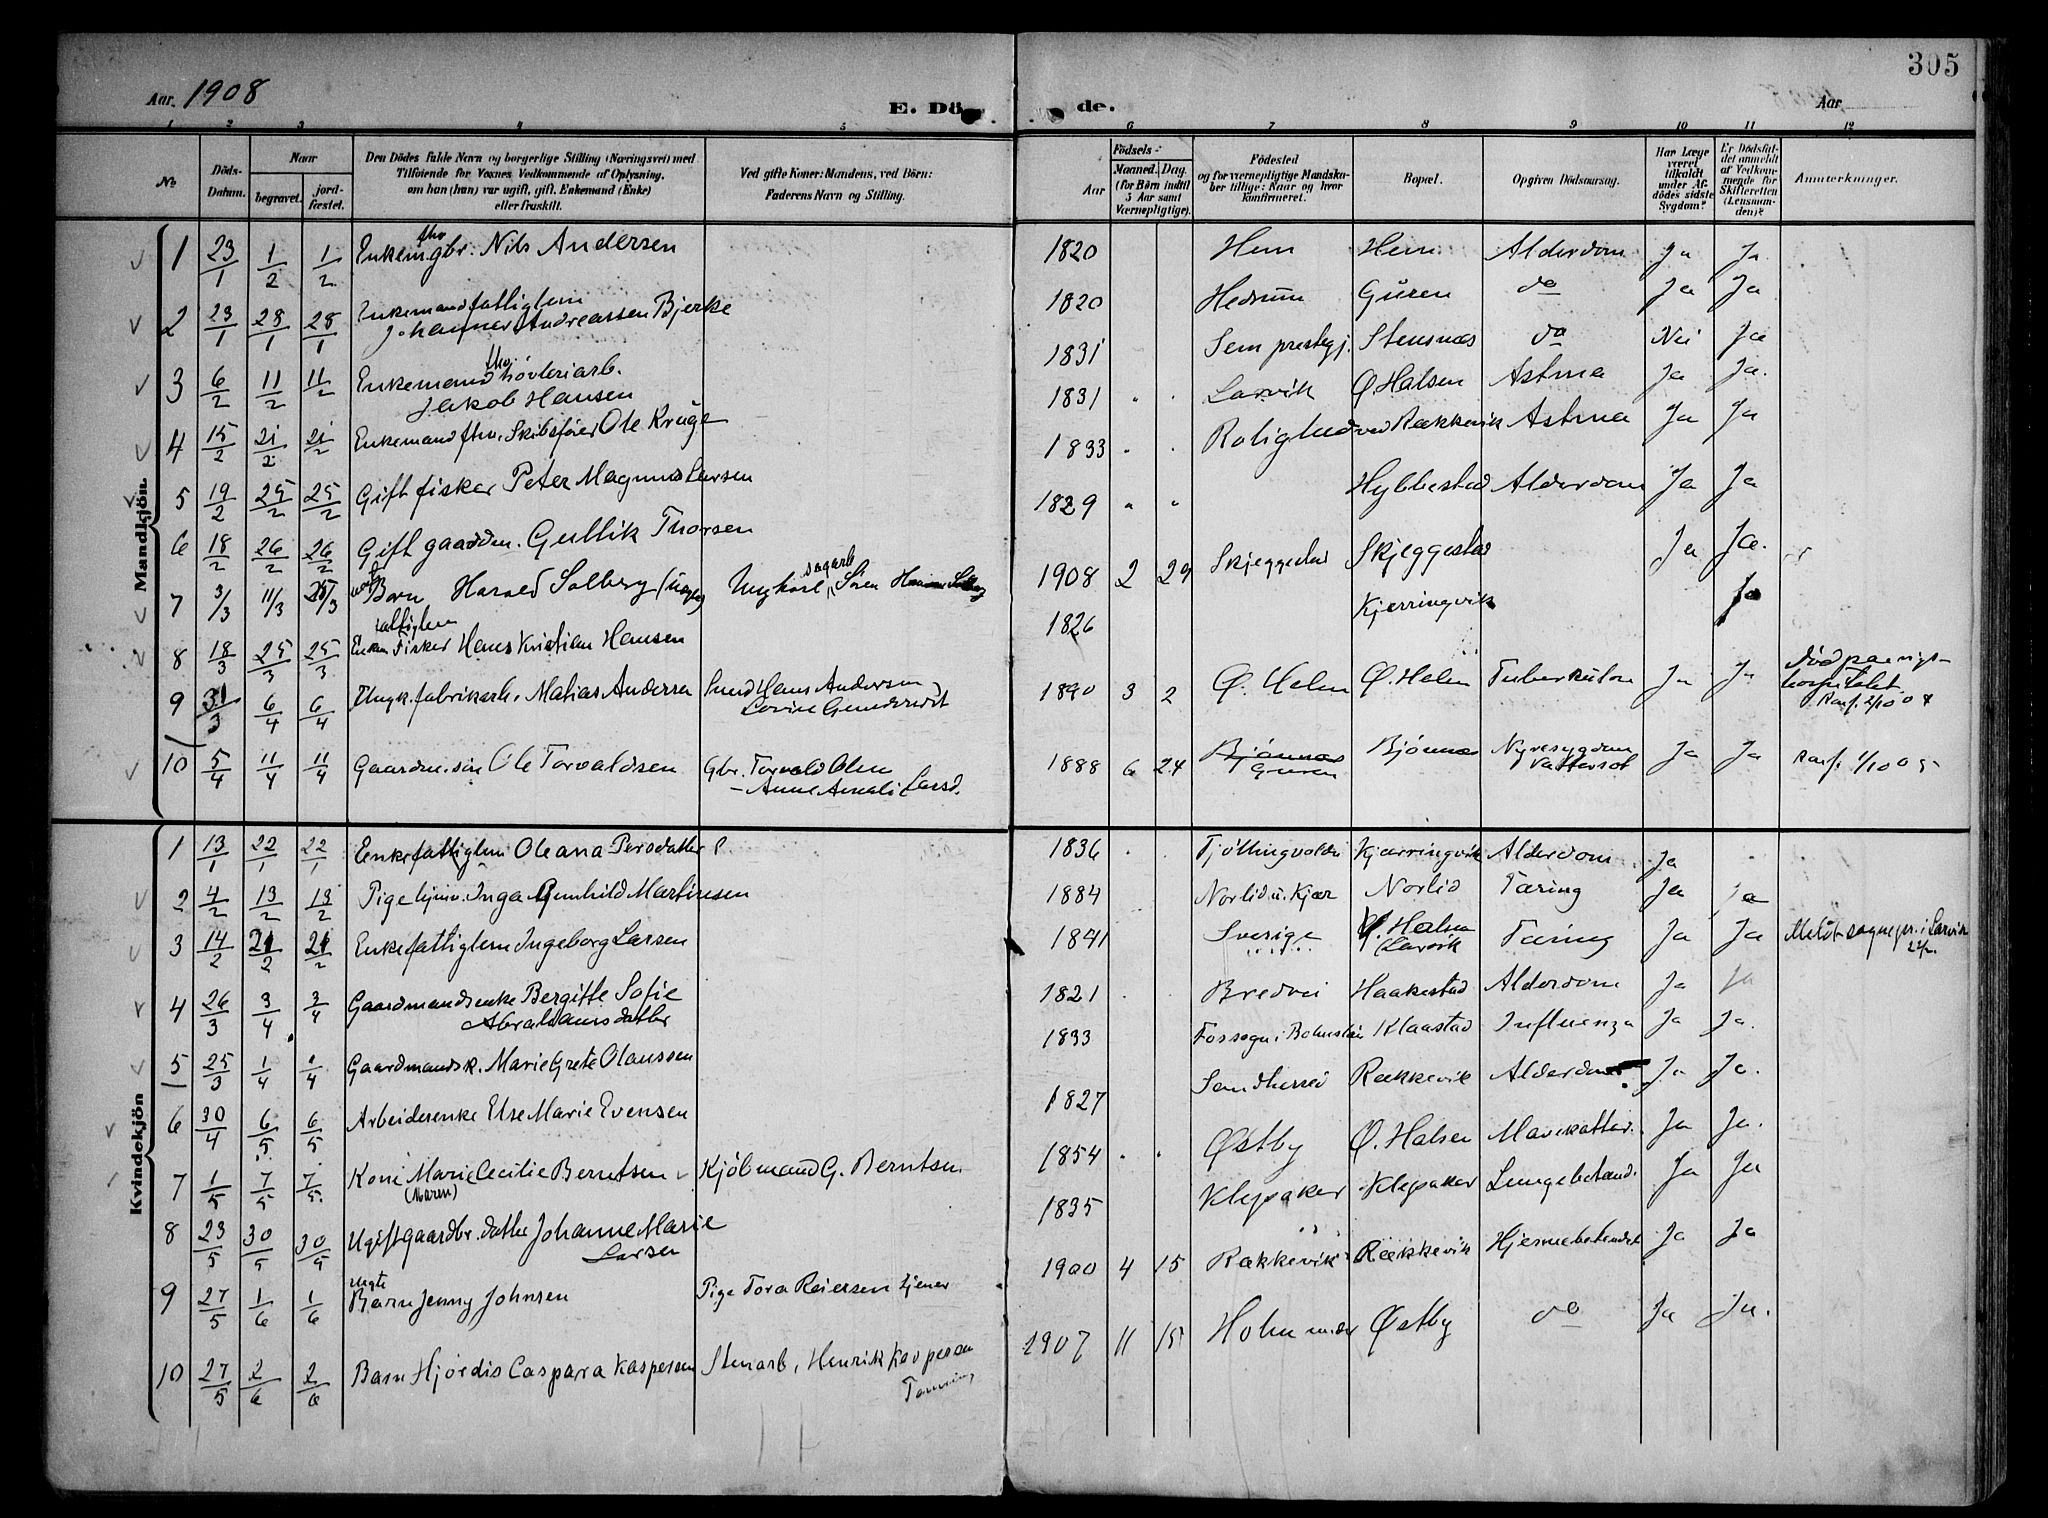 305
Aar. 1908
E. Dö
de.
Aar
1 2 3 4 5 6 7 8 9 10 11 12
No
Döds-Datum.
Naar
begravet.
jord-fæstet.
Den Dödes fulde Navn og borgerlige Stilling (Næringsvei) med
Tilföiende for Voxnes Vedkommende af Oplysning,
om han (hun) var ugift, gift, Enkemand (Enke)
eller fraskilt.
Ved gifte Koner: Mandens, ved Börn:
Faderens Navn og Stilling.
Födsels-
Aar
Maaned. Dag.
(for Börn indtil
5 Aar samt
Værnepligtige).
Födested
og for værnepligtige Mandska-
ber tillige: Naar og hvor
konfirmeret.
Bopæl.
Opgiven Dödsaarsag.
Har Læge
været
tilkaldt
under Af-
dödes sidste
Sygdom?
Er Dödsfal-
det anmeldt
af Vedkom-
mende for
Skifteretten
(Lensman-
den)?
Anmærkninger.
Mandkjön.
1 23/1 1/2 1/2 Enkem. fhv. gbr. Nils Andersen 1820 Hem Hem Alderdom Ja Ja
2 23/1 28/1 28/1 Enkemand fattiglem
Johannes Andreassen Bjerke 1820 Hedrum Guren do Ja Ja
3 6/2 11/2 11/2 Enkemand fhv. høvleriarb.
Jakob Hansen 1831 Sem prestegj. Stensnæs do Nei Ja
4 15/2 21/2 21/2 Enkemand fhv. Skibsfører Ole Krüge 1831 Larvik Ø. Halsen Astma Ja Ja.
5 19/2 25/2 25/2 Gift fisker Peter Magnus Larsen 1833 Rolighed ved Rækkevik Astma Ja Ja
6 18/2 26/2 26/2 Gift gaardm. Gullik Thorsen 1829 Hybbestad Alderdom Ja Ja
7 3/3 11/3 25/3 Barn Harald Solberg Ungkarl, sagarb. Søren Solberg 1908 2 29 Skjeggestad Skjeggestad Ja Ja.
8 18/3 25/3 25/3 fattiglem
Enkem. Fisker Hans Kristian Hansen 1826 Kjerringvik Ja
9 31/3 6/4 6/4 Ungk. fabrikarb. Matias Andersen Smed Hans Andersen
Lovise Gundersdt 1890 3 2 Ø. Halsen Ø. Halsen Tuberkulose Ja Ja Død paa sygehospitalet
Konf. 2/10 04
10 5/4 11/4 11/4 Gaardm. søn Ole Torvaldsen Gbr. Torvald Olsen
- Anne Amalie Larsd. 1888 6 24 Bjønnes
Guren Bjønnes Nyresygdom
Vattersot Ja Ja Konf. 1/10 05
Kvindekjön
1 13/1 22/1 22/1 Enke fattiglem Oleana Persdatter 1836 Tjøllingvolden Kjærringvik Alderdom Ja
2 4/2 13/2 13/2 Pige hjemv. Inga Gunhild Martinsen 1884 Norlid u. Kjær Norlid Tæring Ja Ja
3 14/2 21/2 21/2 Enke fattiglem Ingeborg Larsen 1841 Sverige Ø. Halsen
(Larvik Tæring Ja Ja Meldt sognepr. i Larvik
22/2.
4 26/3 3/4 3/4 Gaardmandsenke Bergitte Sofie
Abrahamsdatter 1821 Bredvei Haakestad Alderdom Ja Ja
5 25/3 1/4 1/4 Gaardmandsk. Marie Grete Olaussen 1833 Fossogn i Bohuslän Klaastad Influenza Ja Ja.
6 30/4 6/5 6/5 Arbeiderenke Else Marie Evensen 1827 Sandherred Rækkevik Alderdom Ja Ja.
7 1/5 7/5 7/5 Kone Marie Cecilie Berntsen
(Maren) Kjøbmand G. Berntsen 1854 Østby Ø. Halsen Mavekatarr. Ja Ja.
8 23/5 30/5 30/5 Ugift gaardbr. datter Johanne Marie
Larsen 1835 Klepaker Klepaker Lungebetænd. Ja Ja
9 27/5 1/6 1/6 uegte
Barn Jenny Johnsen Pige Tora Reiersen tjener 1900 4 15 Rækkevik Rækkevik Hjernebetændels Ja Ja
10 27/5 2/6 2/6 Barn Hjørdis Caspara Kaspersen Stenarb. Henrik Kaspersen 1907 11 15 Holm Østby do Ja Ja.